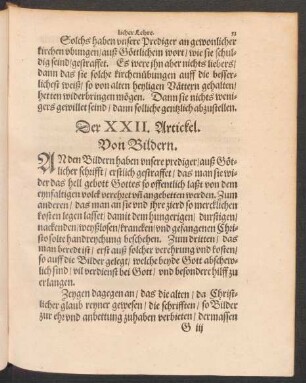 licher Lehre. 23
Solchs haben vnsere Prediger an gewonlicher
kirchen übungen/ auß Göttlichem wort/ wie sie schul-
dig seind/ gestraffet. Es were jhn aber nichts liebers/
dann das sie solche kirchenübungen auff die besser-
licheſt weiß/ so von alten heyligen Vättern gehalten/
hetten widerbringen mögen. Dann sie nichts weni-
gers gewillet seind/ dann selliche gentzlich abzustellen.
Der XXII. Artickel.
Von Bildern.
AN den Bildern haben vnsere prediger/ auß Göt-
licher schrifft/ erstlich gestraffet/ das man sie wi-
der das hell gebott Gottes so offentlich laßt von dem
eynfaltigen volck verehret vñ angebettten werden. Zum
anderen/ das man an sie vnd jhre zierd so mercklichen
kosten legen lasset/ damit dem hungerigen/ durstigen/
nackenden/ weyßlosen/ krancken/ vnd gefangenen Chri-
sto solte handreychung beschehen. Zum dritten/ das
man beredt ist/ erst auß solcher verehrung vnd kosten/
so auff die Bilder gelegt/ welche beyde Gott abschew-
lich sind/ vil verdienst bei Gott/ vnd besondere hilff zu
erlangen.
Zeygen dagegen an/ das die alten/ da Christ-
licher glaub reyner gewesen/ die schrifften/ so Bilder
zur ehr vnd anbettung zuhaben verbieten/ dermassen
G iij